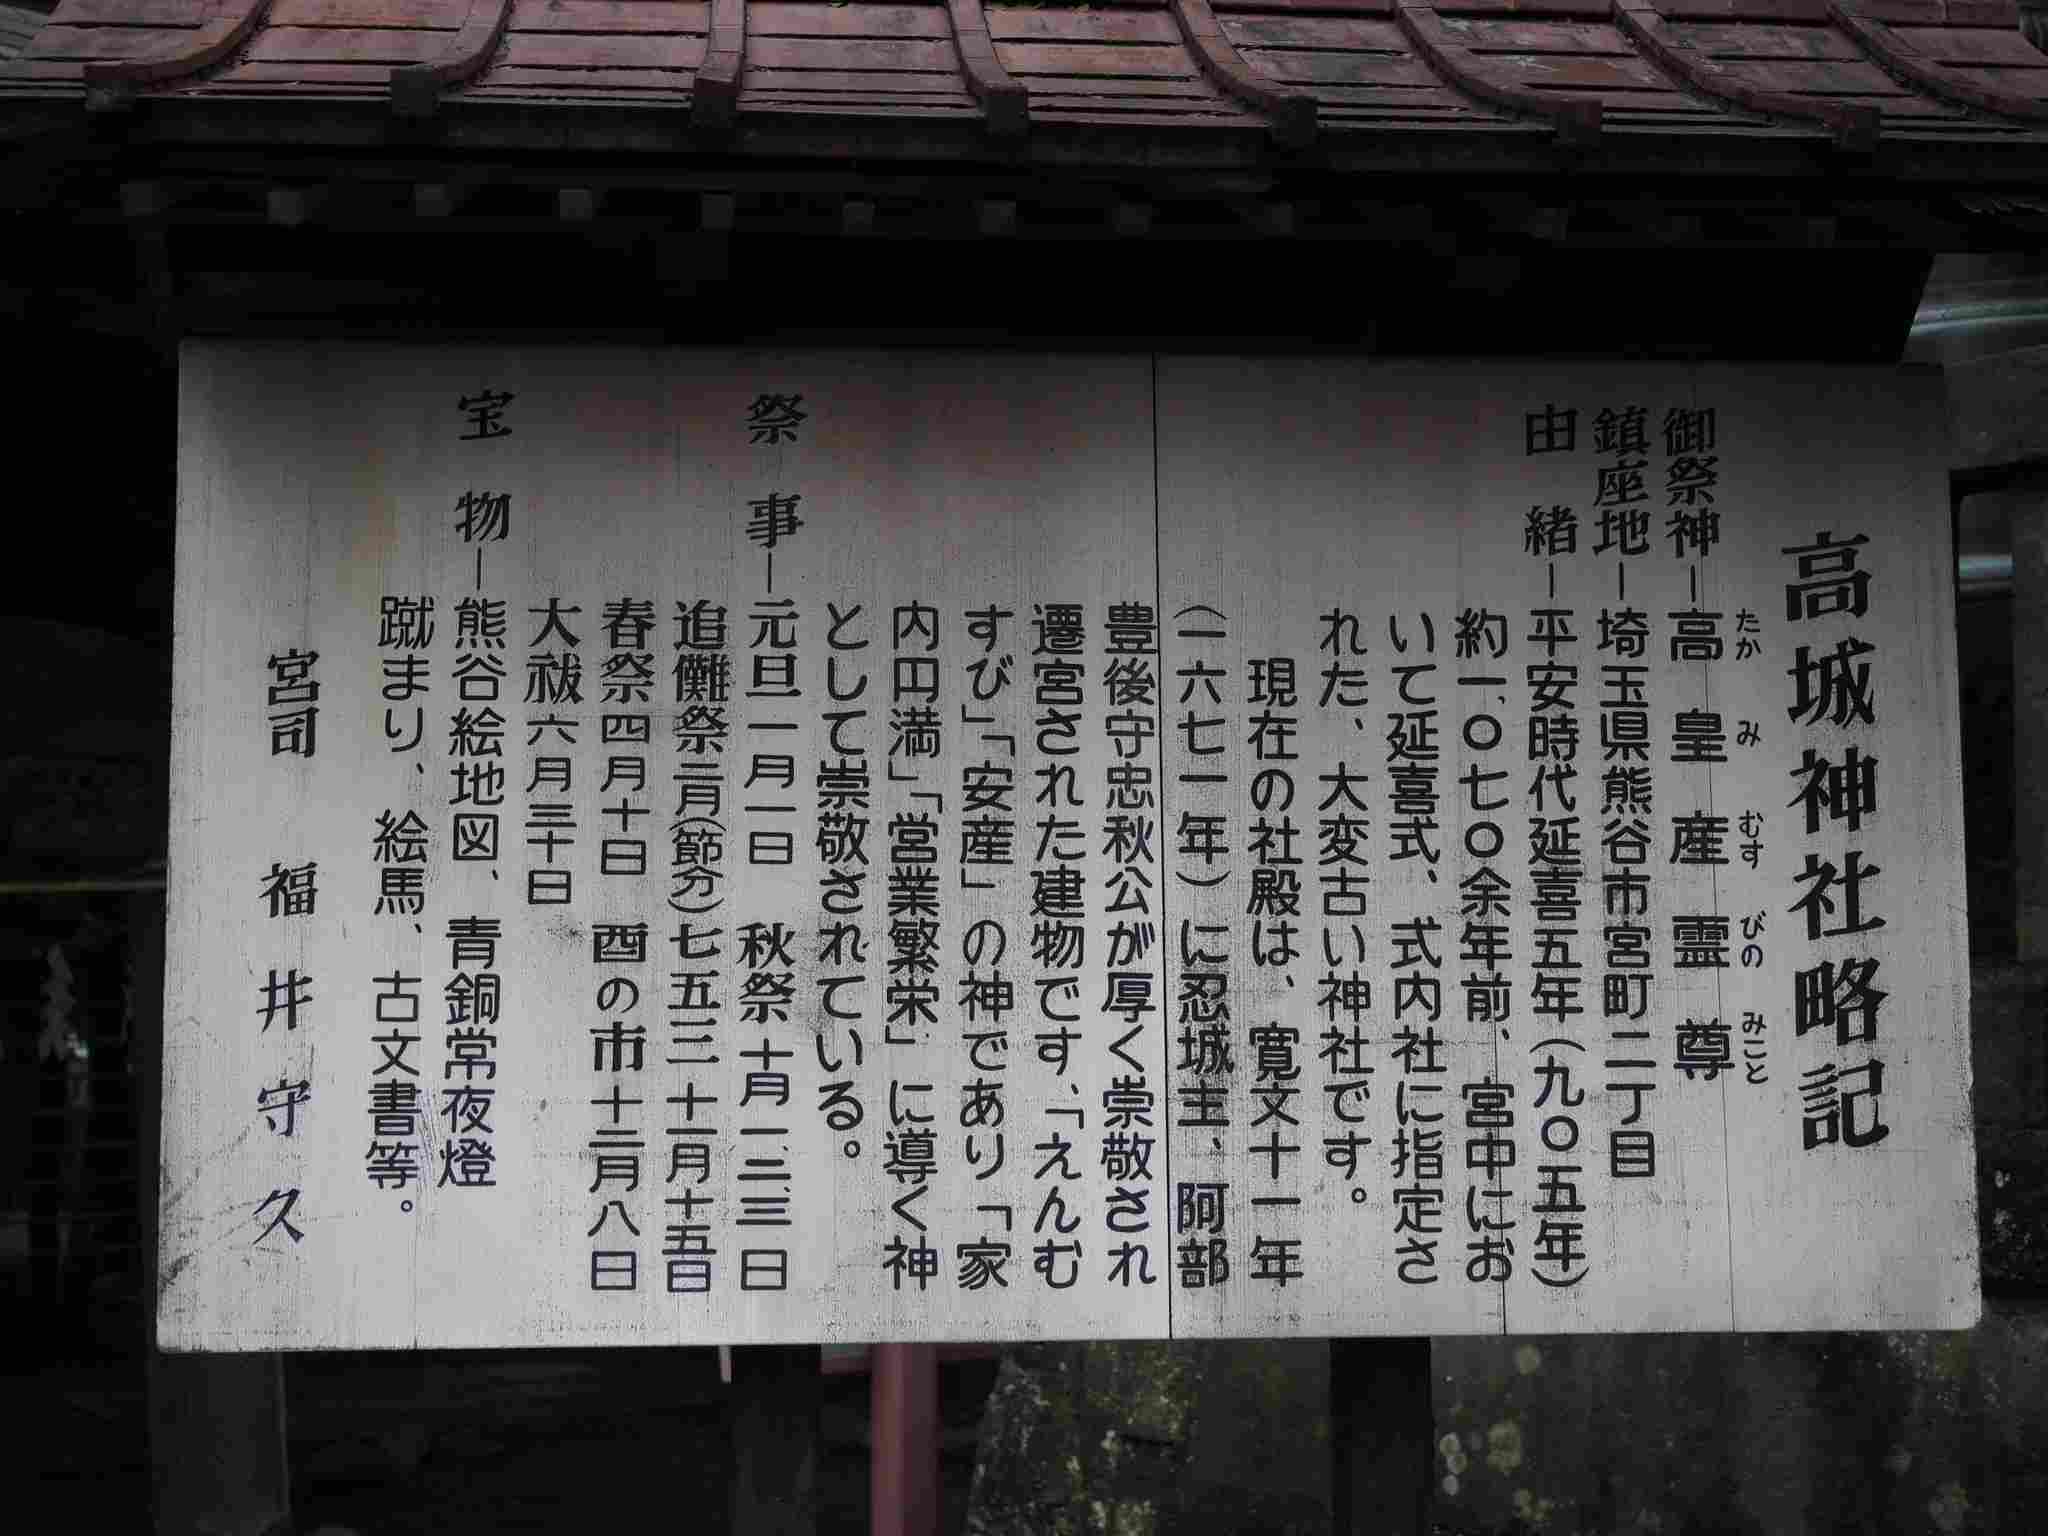 高城神社略記
御祭神―高皇産霊尊
たか み むす びの みこと
鎮座地―埼玉県熊谷市宮町二丁目
由緒―平安時代延喜五年(九〇五年)
約一、〇七〇余年前、宮中にお
いて延喜式、式内社に指定さ
れた、大変古い神社です。
現在の社殿は、寛文十一年
(一六七一年)に忍城主、阿部
豊後守忠秋公が厚く崇敬され
遷宮された建物です、「えんむ
すび」「安産」の神であり「家
内円満」「営業繁栄」に導く神
として崇敬されている。
祭事―元旦一月一日 秋祭十月一、二、三日
追儺祭二月(節分)七五三十一月十五日
春祭四月十日 酉の市十二月八日
大祓六月三十日
宝物―熊谷絵地図、青銅常夜燈
蹴まり、絵馬、古文書等。
宮司 福井守久